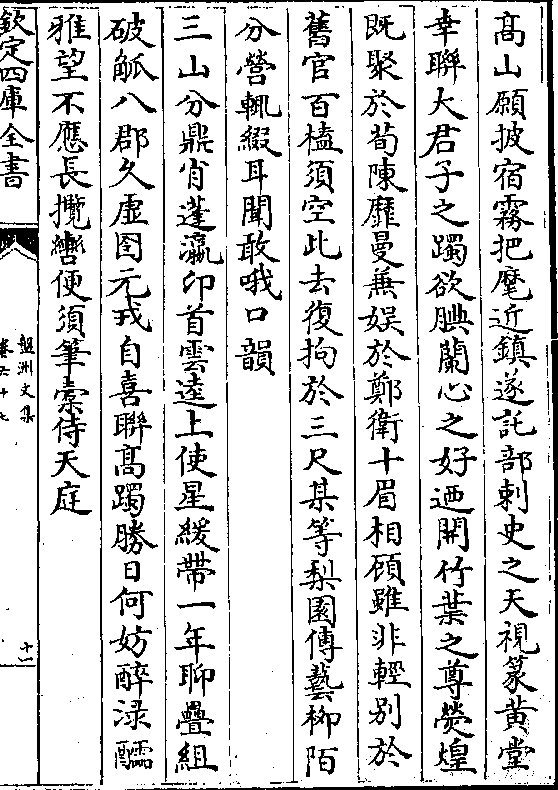 高山願披宿霧把麾近鎮遂託部刺史之天視篆黃堂
幸聯大君子之躅欲腆蘭心之好迺開竹葉之尊熒煌
既聚於荀陳靡曼兼娱於鄭衛十眉相顧雖非輕别於
舊官百榼須空此去復拘於三尺某等梨園傳藝栁陌
分營輒綴耳聞敢哦口韻
三山分鼎肖蓬瀛卬首雲逵上使星緩帶一年聊疊組
破觚八郡久虚囹元戎自喜聯髙躅勝日何妨醉渌醽
雅望不應長攬轡便須筆槖侍天庭
欽定四庫全書
盤洲文集
卷六十七
十一